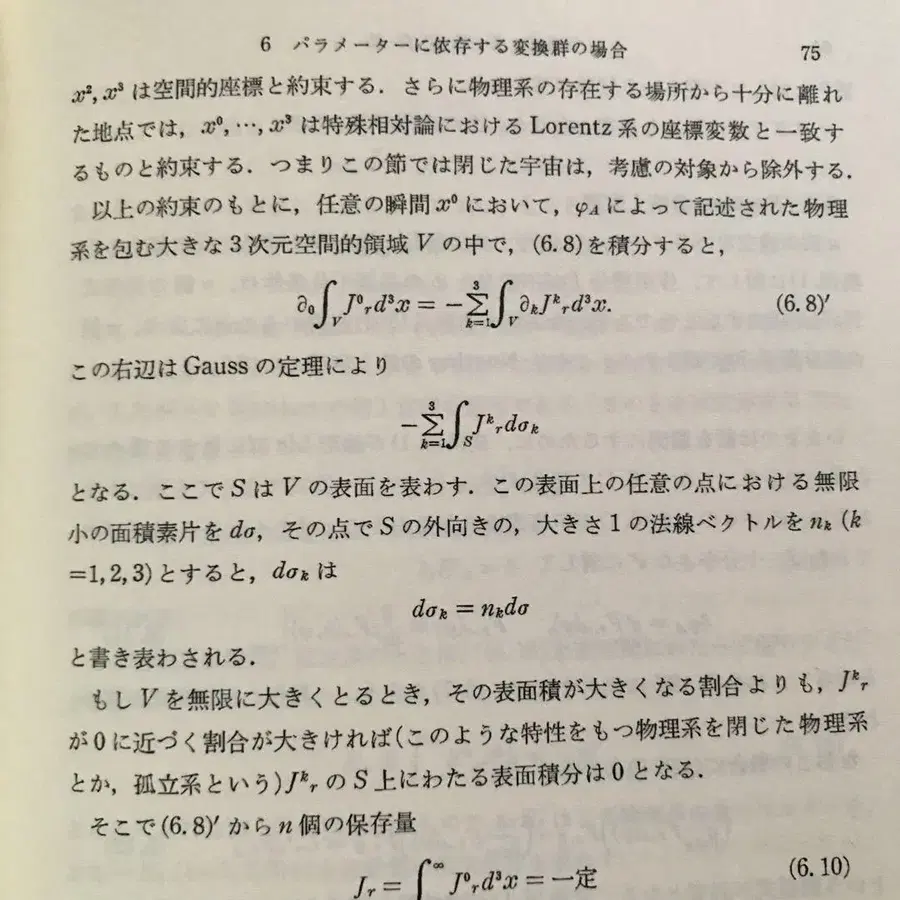 6 パラメーターに依存する変換群の場合 75
x², x³ は空間的座標と約束する．さらに物理系の存在する場所から十分に離れ
た地点では，x⁰, ⋯, x³ は特殊相対論における Lorentz 系の座標変数と一致す
るものと約束する．つまりこの節では閉じた宇宙は，考慮の対象から除外する．
以上の約束のもとに，任意の瞬間 x⁰ において，φ_A によって記述された物理
系を包む大きな 3 次元空間的領域 V の中で，(6.8)を積分すると，
∂₀∫_V J⁰_r d³x = −∑_{k=1}^{3}∫_V ∂_k J^k_r d³x. (6.8)′
この右辺は Gauss の定理により
−∑_{k=1}^{3}∫_S J^k_r dσ_k
となる．ここで S は V の表面を表わす．この表面上の任意の点における無限
小の面積素片を dσ，その点で S の外向きの，大きさ 1 の法線ベクトルを n_k (k
=1,2,3)とすると，dσ_k は
dσ_k = n_k dσ
と書き表わされる．
もし V を無限に大きくとるとき，その表面積が大きくなる割合よりも，J^k_r
が 0 に近づく割合が大きければ(このような特性をもつ物理系を閉じた物理系
とか，孤立系という)J^k_r の S 上にわたる表面積分は 0 となる．
そこで(6.8)′ から n 個の保存量
J_r = ∫^∞ J⁰_r d³x = 一定 (6.10)